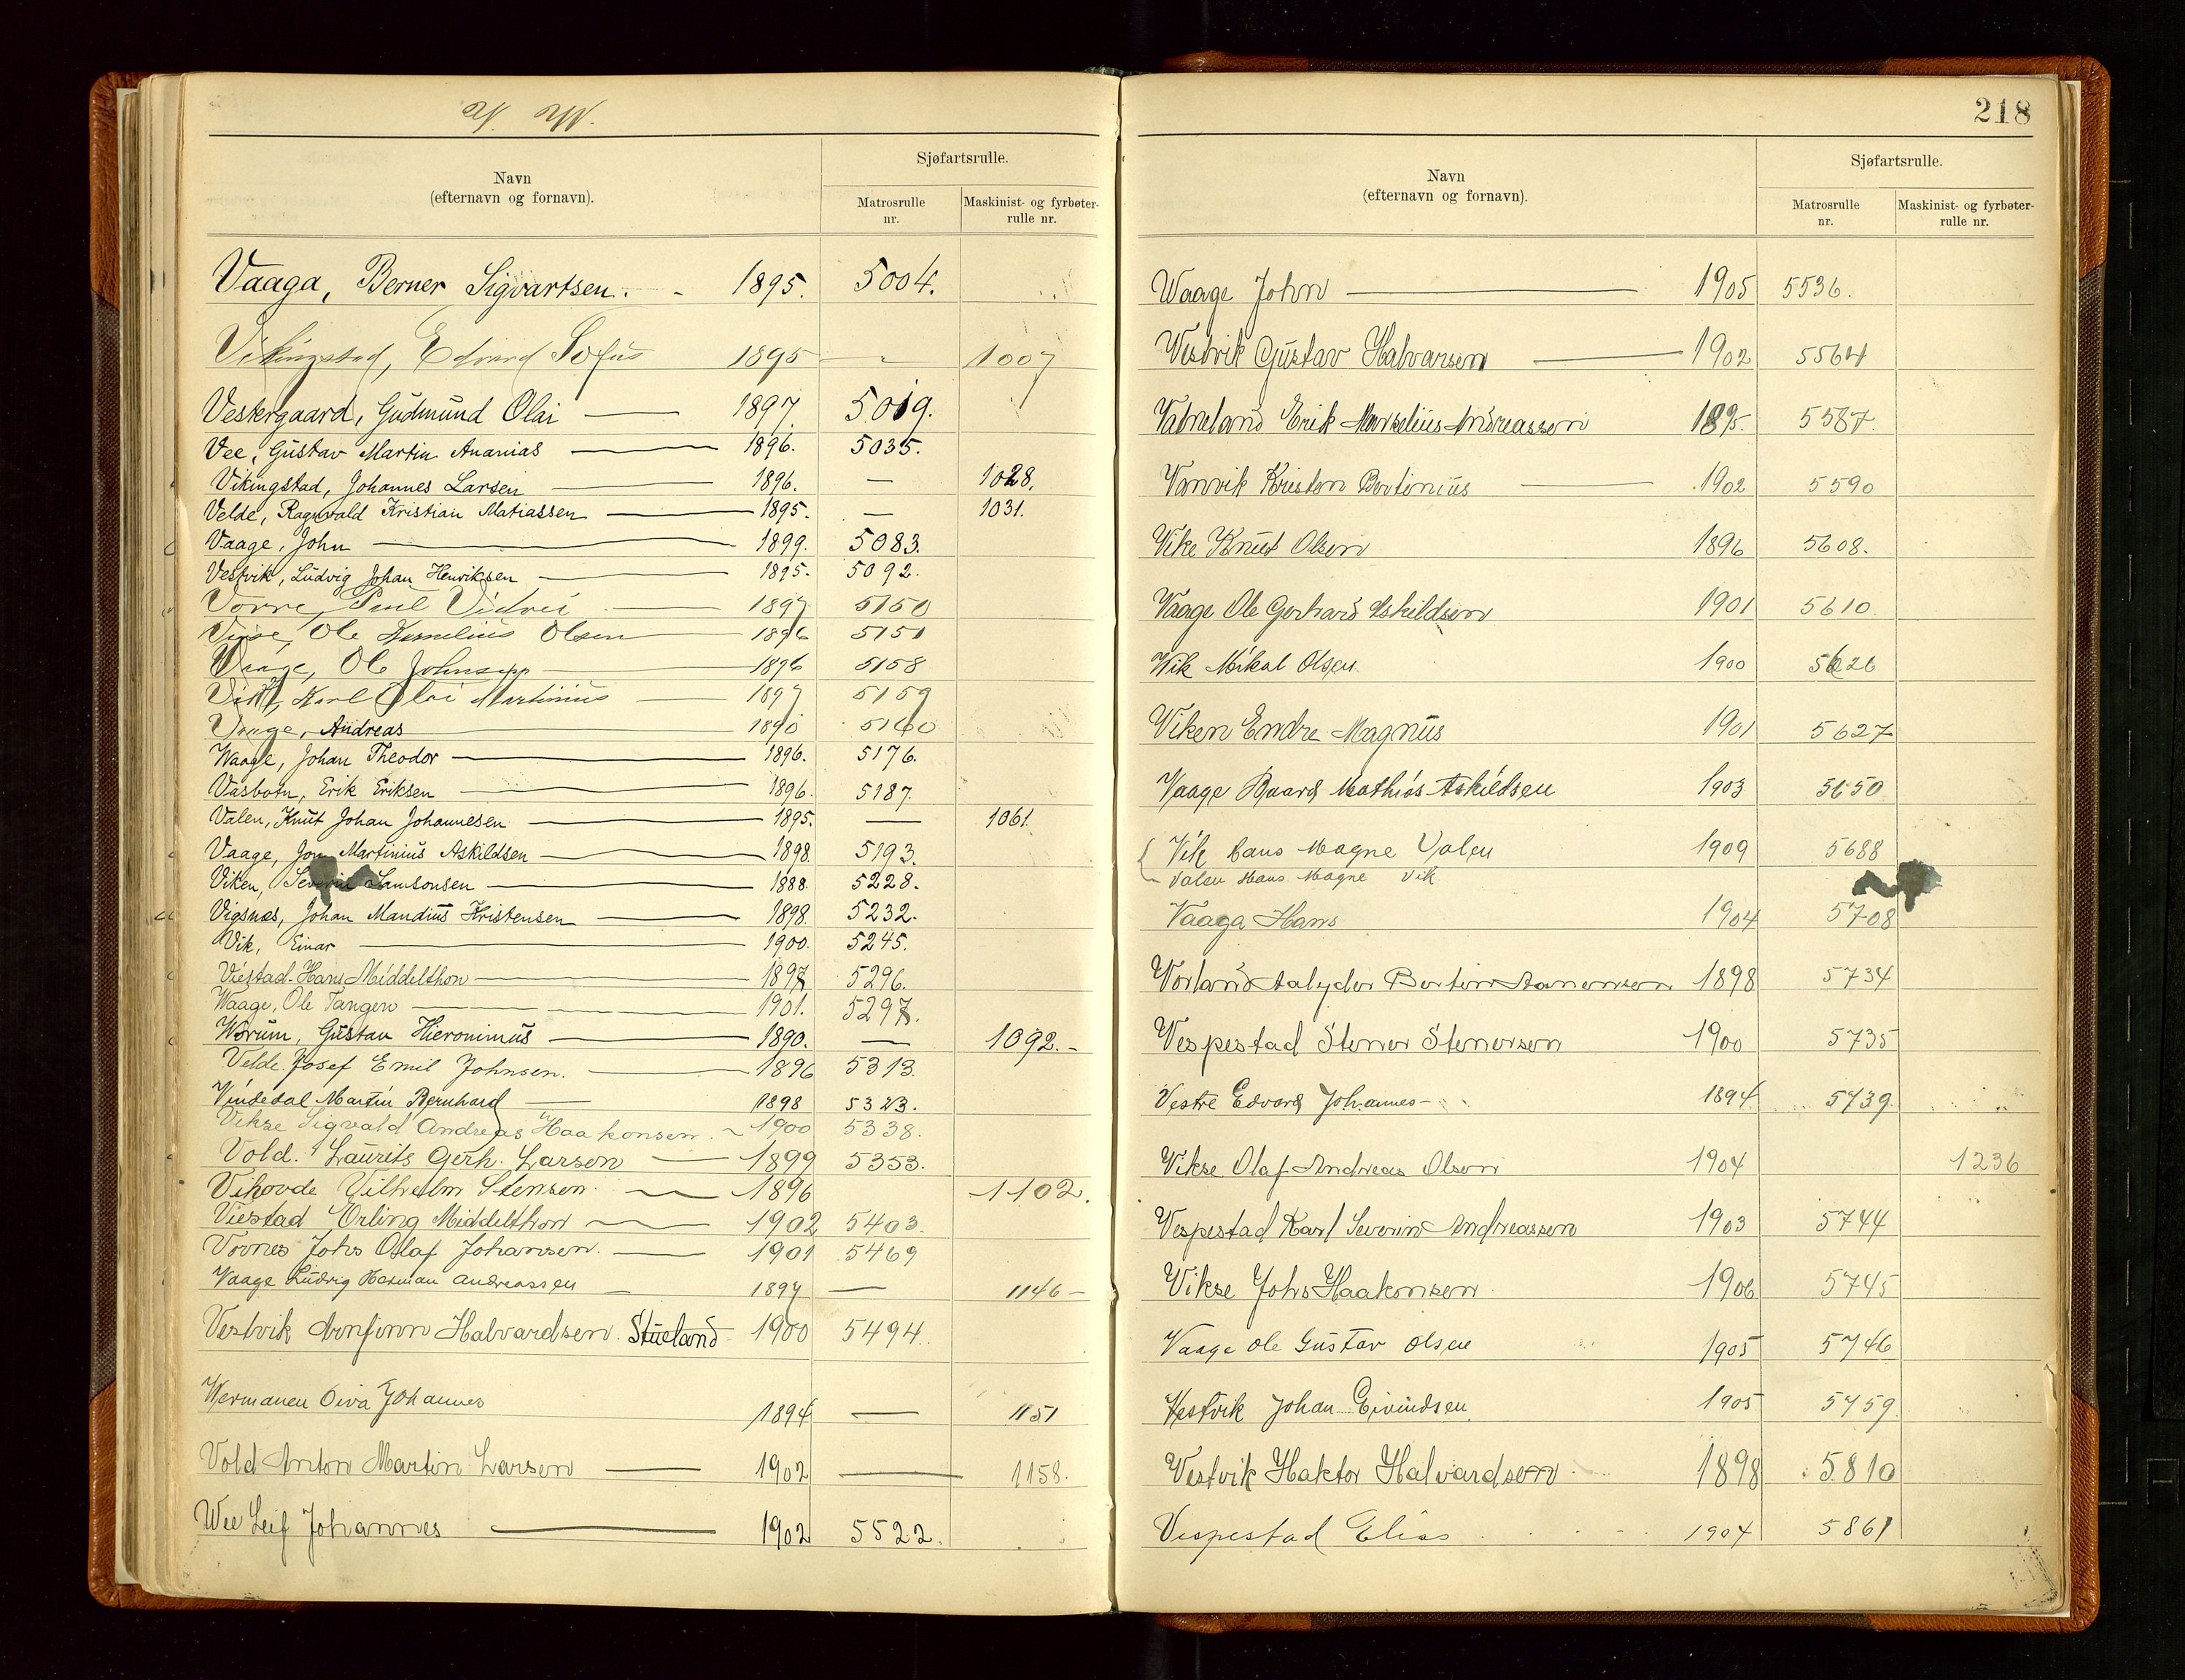 V. W.
Navn
(efternavn og fornavn).
Sjøfartsrulle.
Matrosrulle nr.
Maskinist- og fyrbøter-rulle nr.
Vaaga, Berner Sigvartsen. - 1895. 5004.
Vikingstad, Edvard Sofus 1895 — 1007
Vestergaard, Gudmund Olai — 1897. 5019.
Vee, Gustav Martin Ananias — 1896. 5035.
Vikingstad, Johannes Larsen — 1896. — 1028.
Velde, Ragnvald Kristian Matiassen — 1895. — 1031.
Vaage, John — 1899. 5083.
Vestvik, Ludvig Johan Henriksen — 1895. 5092.
Vorre, Paul — 1897 5150
Ole Kornelius Olsen — 1896 5151
Vaage, Ole Johnsen — 1896 5158
Vik, Karl Olai Martinius — 1897 5159
Vaage, Andreas 1890 5160
Waage, Johan Theodor — 1896. 5176.
Vasbotn, Erik Eriksen — 1896. 5187.
Valen, Knut Johan Johannesen — 1895. — 1061.
Vaage, Jon Martinius Askildsen — 1898. 5193.
Viken, Severin Samsonsen — 1888. 5228.
Vigsnes, Johan Mandius Kristensen — 1898. 5232.
Vik, Einar — 1900. 5245.
Viestad. Hans Middelthon — 1897 5296.
Waage, Ole Tangen — 1901. 5297.
Worum, Gustav Hieronimus — 1890. — 1092.-
Velde Josef Emil Johnsen. — 1896 5313.
Vindedal Martin Bernhard — 1898 5323.
Vikse Sigvald Andreas Haakonsen. ~ 1900 5338.
Vold. Laurits Gerh. Larsen — 1899 5353.
Vikovde Vilhelm Stensen. — 1896 1102.
Viestad Erling Middelthon — 1902 5403.
Vornes Johs Olaf Johansen. — 1901 5469
Vaage Ludvig Herman Andreassen — 1897 — 1146 -
Vestvik Arnfinn Halvardsen. Stueland 1900 5494.
Wermanen Oiva Johannes 1894 — 1151
Vold Anton Martin Larsen — 1902 — 1158.
Wee Leif Johannes — 1902 5522.
218
Navn
(efternavn og fornavn).
Sjøfartsrulle.
Matrosrulle nr.
Maskinist- og fyrbøter-rulle nr.
Waage John — 1905 5536.
Vestvik Gustav Halvarsen — 1902 5564
Vatneland Erik Markelius Andreassen 1895. 5587.
Vanvik Kristen Bertinius — 1902 5590
Vike Knut Olsen 1896 5608.
Vaage Ole Gerhard Eskildsen 1901 5610
Vik Mikal Olsen 1900 5626
Viken Endre Magnus 1901 5627
Vaage Baard Mathias Askildsen 1903 5650
Vik Hans Magne Valen 1909 5688
Valen Hans Magne Vik
Vaaga Hans 1904 5708
Vorland Aalyder Bertin Aanensen 1898 5734
Vespestad Stener Stenersen 1900 5735
Vestre Edvard Johannes - 1894 5739
Vikse Olaf Andreas Olsen 1904 1236
Vespestad Karl Severin Andreassen 1903 5744
Vikse Johs Haakonsen 1906 5745
Vaage Ole Gustav Olsen 1905 5746
Vestvik Johan Eivindsen 1905 5759
Vestvik Haktor Halvardsen 1898 5810
Vespestad Elias 1904 5861